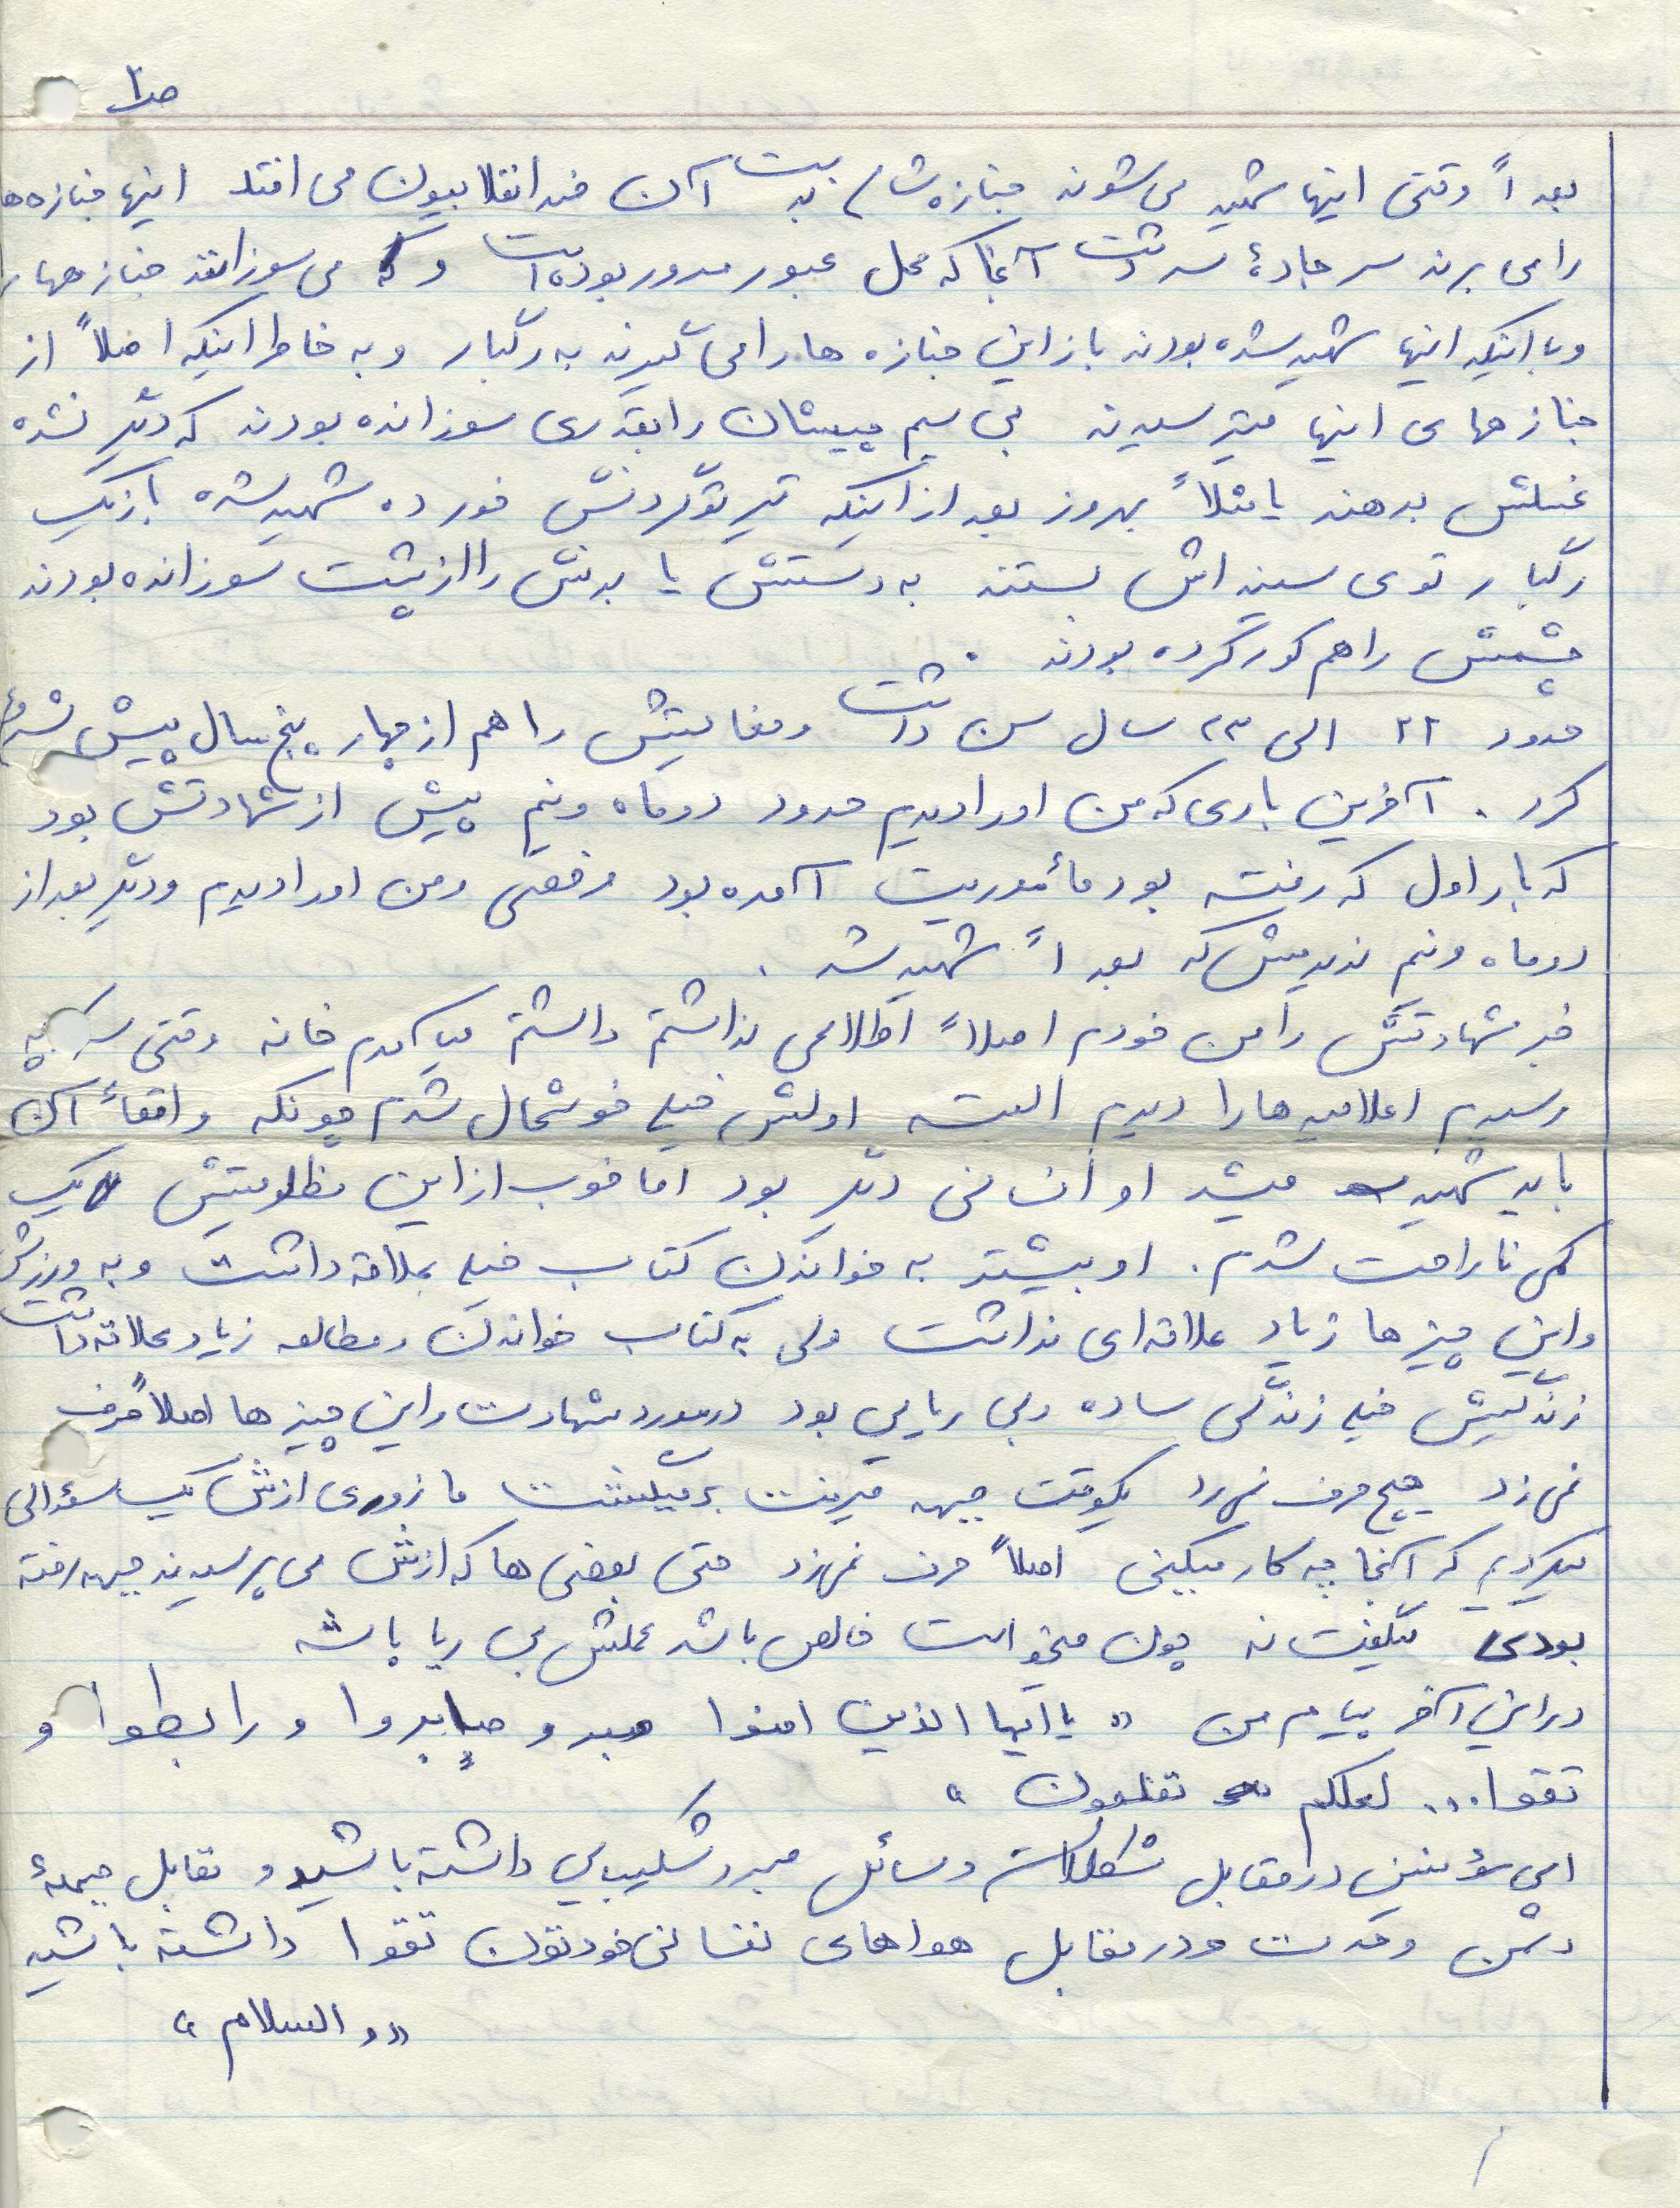 ص۲
بعداً وقتی اینها شهید می‌شوند جنازه‌شان بدست آن ضد انقلابیون می افتد اینها جنازه‌ها
را می برند سر جادهٔ سردشت آنجا که محل عبور مرور بوده است و می سوزانند جنازهها را
و با اینکه اینها شهید شده بودند باز این جنازه ها را می گیرند به رگبار و به خاطر اینکه اصلاً از
جنازهای اینها میترسیدند بی سیم چیشان را بقدری سوزانده بودند که دیگر نشده
غسلش بدهند یا مثلاً بهروز بعد از اینکه تیر تو گردنش خورده شهید شده باز یک
رگبار توی سینه اش بستند به دستش یا بدنش را از پشت سوزانده بودند
چشمش را هم کور کرده بودند .
حدود ۲۲ الی ۲۳ سال سن داشت و فعالیتش را هم از چهار، پنج سال پیش شروع
کرد . آخرین باری که من او را دیدم حدود دو ماه و نیم پیش از شهادتش بود
که بار اول که رفته بود مأموریت آمده بود مرخصی و من او را دیدم و دیگر بعد از
دو ماه و نیم ندیدمش که بعداً شهید شد .
خبر شهادتش را من خودم اصلاً اطلاعی نداشتم داشتم می آمدم خانه وقتی سر کوچه
رسیدم اعلامیه ها را دیدم البته اولش خیلی خوشحال شدم چونکه واقعاً آن
باید شهید میشد او انسانی دیگر بود اما خوب از این مظلومیتش یک
کمی ناراحت شدم . او بیشتر به خواندن کتاب خیلی علاقه داشت و به ورزش
و این چیزها زیاد علاقه‌ای نداشت ولی به کتاب خواندن و مطالعه زیاد علاقه داشت
زندگیش خیلی زندگی ساده و بی ریایی بود در مورد شهادت و این چیزها اصلاً حرف
نمیزد هیچ حرف نمیزد یکوقت جبهه میرفت برمیگشت ما زوری ازش یک سؤالی
میکردیم که آنجا چه کار میکنی اصلاً حرف نمیزد حتی بعضی ها که ازش می پرسیدند جبهه رفته
بودی میگفت نه چون میخواست خالص باشد عملش بی ریا باشد
در این آخر پیام من « یا ایها الذین امنوا صبرو و صابروا و رابطوا و
تقوا... لعلکم تفلحون »
ای مؤمنین در مقابل مشکلات و مسائل صبر و شکیبایی داشته باشید و مقابل جبههٔ
دشمن وحدت و در مقابل هواهای نفسانی خودتون تقوا داشته باشید
« والسلام »